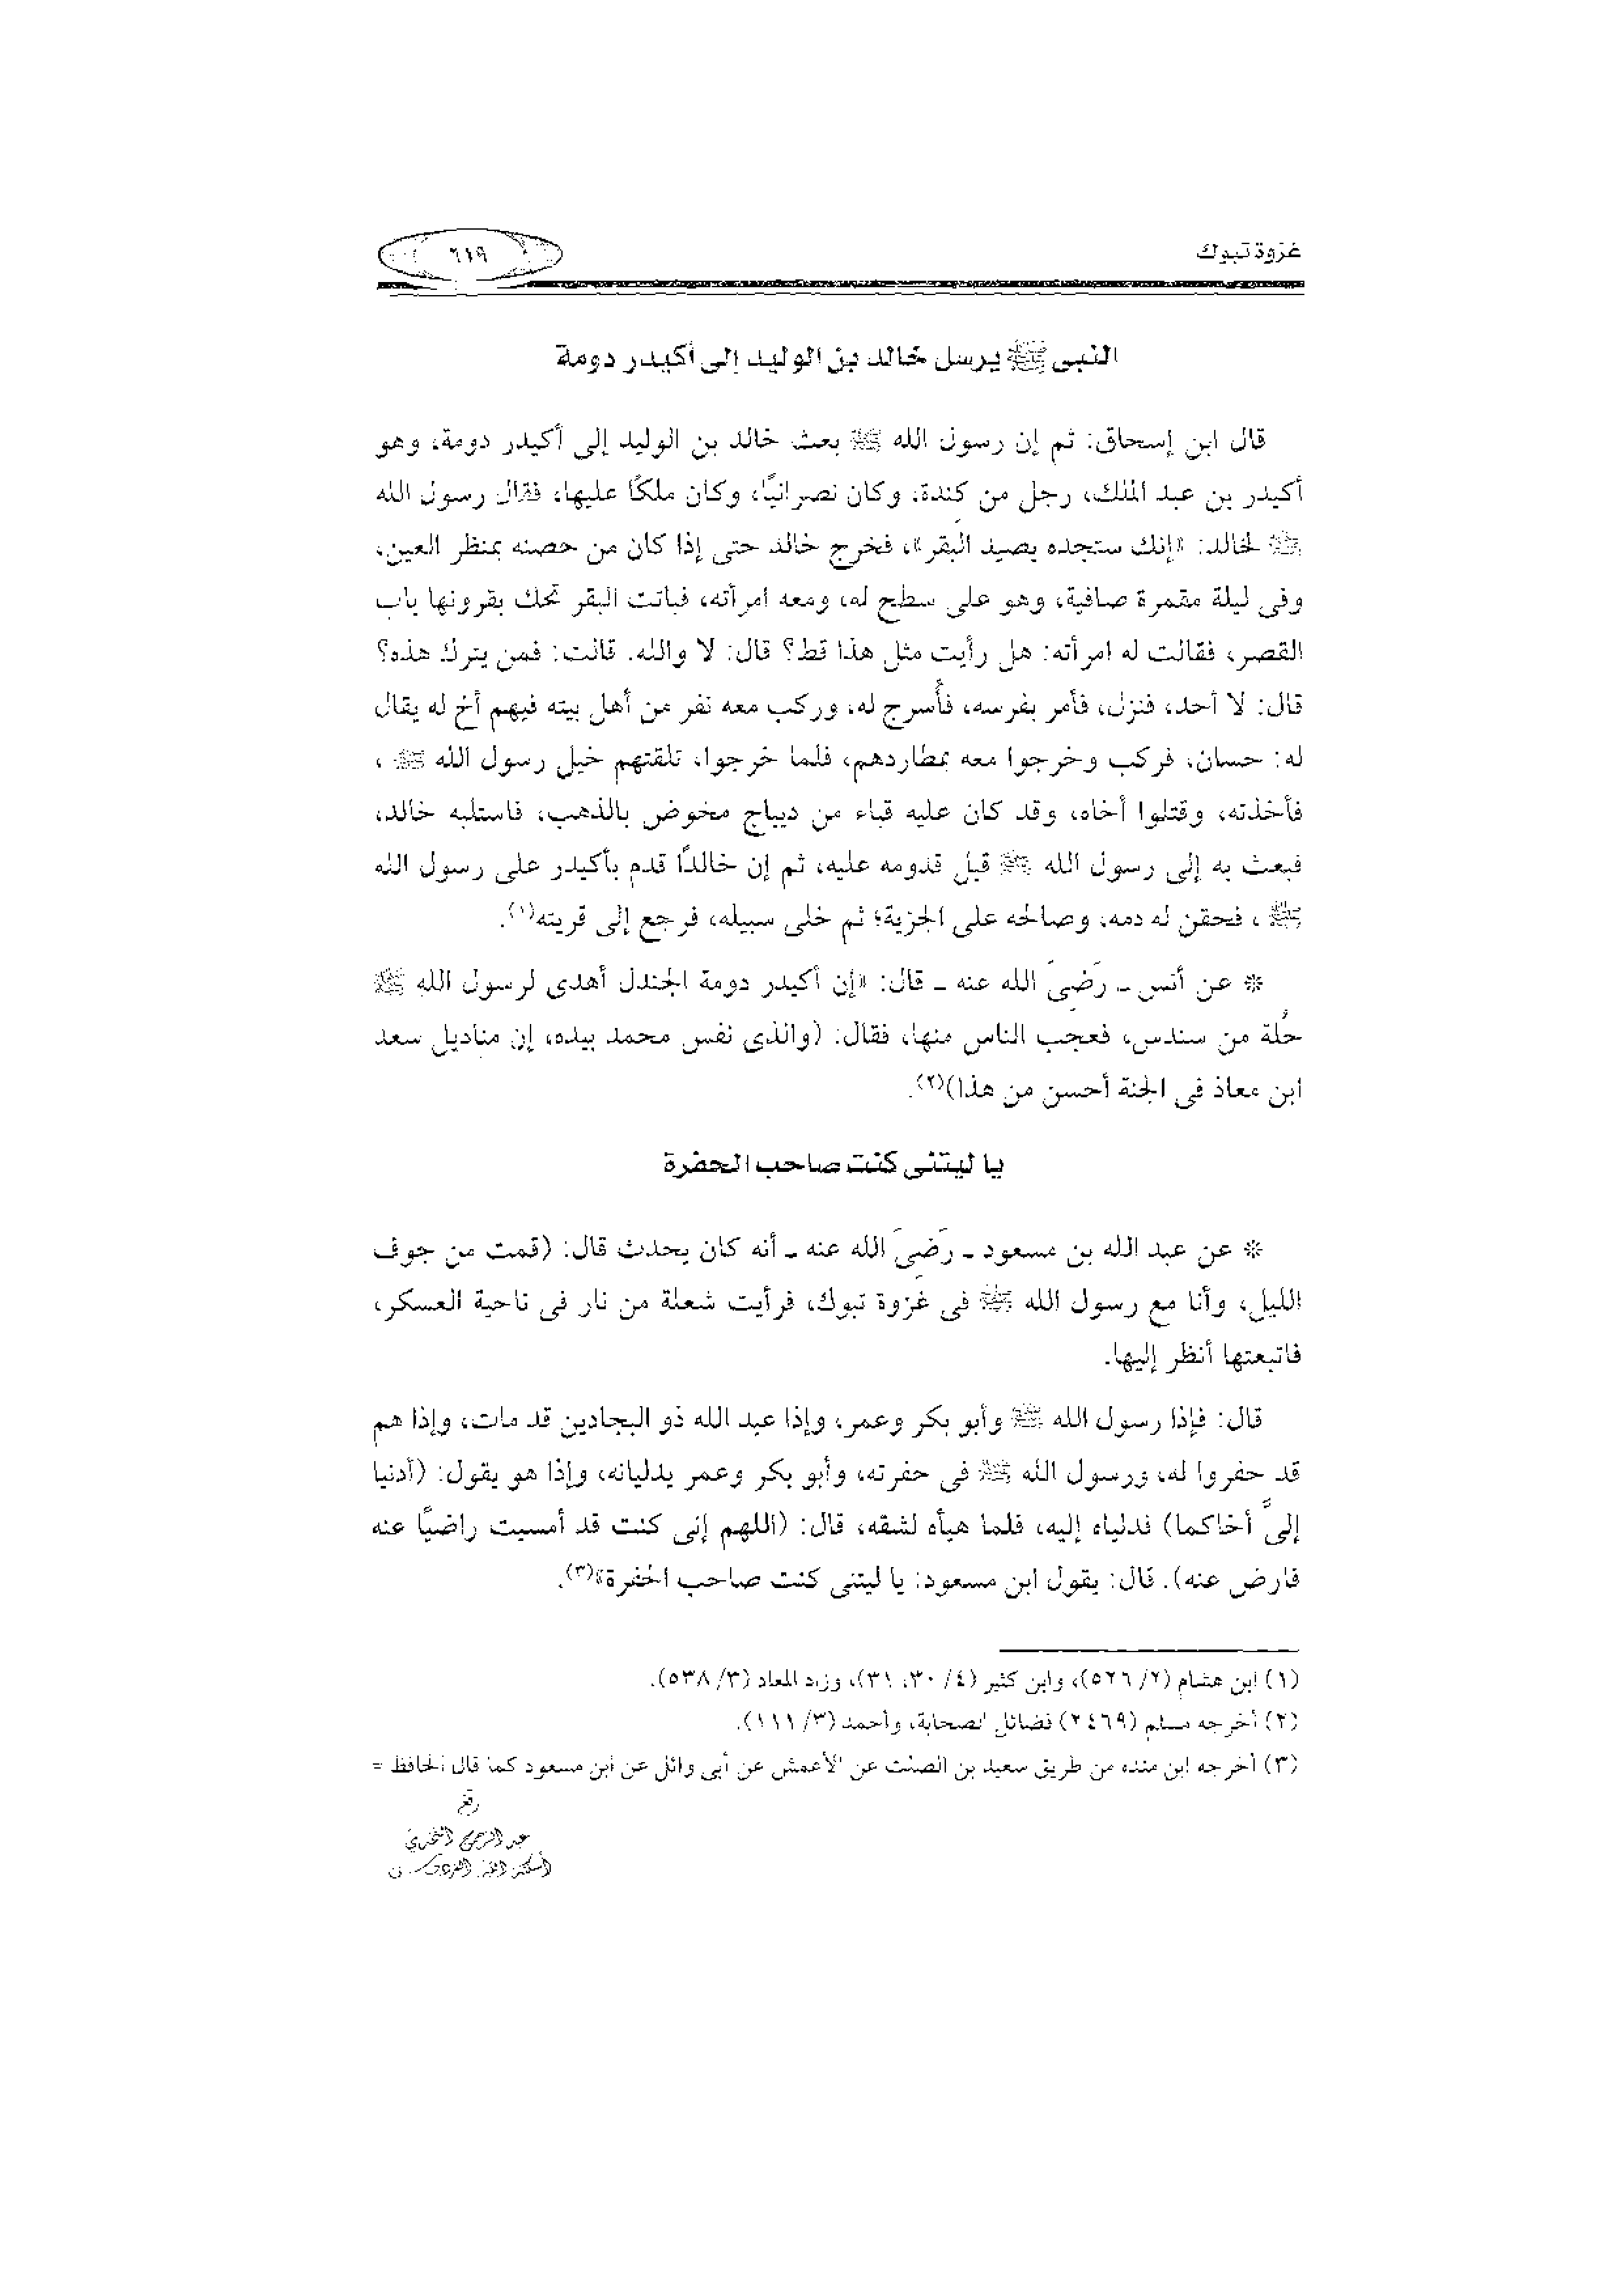 غزوة تبوك
٦١٩
النبى ﷺ يرسل خالد بن الوليد إلى أكيدر دومة
قال ابن إسحاق: ثم إن رسول الله ﷺ بعث خالد بن الوليد إلى أكيدر دومة، وهو
أكيدر بن عبد الملك، رجل من كندة، وكان نصرانيًا، وكان ملكًا عليها، فقال رسول الله
ﷺ لخالد: «إنك ستجده يصيد البَقر»، فخرج خالد حتى إذا كان من حصنه بمنظر العين،
وفى ليلة مقمرة صافية، وهو على سطح له، ومعه امرأته، فباتت البقر تحك بقرونها باب
القصر، فقالت له امرأته: هل رأيت مثل هذا قط؟ قال: لا والله. قالت: فمن يترك هذه؟
قال: لا أحد، فنزل، فأمر بفرسه، فأُسرج له، وركب معه نفر من أهل بيته فيهم أخ له يقال
له: حسان، فركب وخرجوا معه بمطاردهم، فلما خرجوا، تلقتهم خيل رسول الله ﷺ ،
فأخذته، وقتلوا أخاه، وقد كان عليه قباء من ديباج مخوض بالذهب، فاستلبه خالد،
فبعث به إلى رسول الله ﷺ قبل قدومه عليه، ثم إن خالدًا قدم بأكيدر على رسول الله
ﷺ ، فحقن له دمه، وصالحه على الجزية؛ ثم خلى سبيله، فرجع إلى قريته(١).
* عن أنس ـ رَضِىَ الله عنه ـ قال: «إن أكيدر دومة الجندل أهدى لرسول الله ﷺ
حُلة من سندس، فعجب الناس منها، فقال: (والذى نفس محمد بيده، إن مناديل سعد
ابن معاذ فى الجنة أحسن من هذا)(٢).
يا ليتنى كنت صاحب الحفرة
* عن عبد الله بن مسعود ـ رَضِىَ الله عنه ـ أنه كان يحدث قال: (قمت من جوف
الليل، وأنا مع رسول الله ﷺ فى غزوة تبوك، فرأيت شعلة من نار فى ناحية العسكر،
فاتبعتها أنظر إليها.
قال: فإذا رسول الله ﷺ وأبو بكر وعمر، وإذا عبد الله ذو البجادين قد مات، وإذا هم
قد حفروا له، ورسول الله ﷺ فى حفرته، وأبو بكر وعمر يدليانه، وإذا هو يقول: (أدنيا
إلىَّ أخاكما) فدلياه إليه، فلما هيأه لشقه، قال: (اللهم إنى كنت قد أمسيت راضيًا عنه
فارض عنه). قال: يقول ابن مسعود: يا ليتنى كنت صاحب الحفرة»(٣).
(١) ابن هشام (٢/ ٥٢٦)، وابن كثير (٤/ ٣٠، ٣١)، وزاد المعاد (٣/ ٥٣٨).
(٢) أخرجه مسلم (٢٤٦٩) فضائل الصحابة، وأحمد (٣/ ١١١).
(٣) أخرجه ابن منده من طريق سعيد بن الصلت عن الأعمش عن أبى وائل عن ابن مسعود كما قال الحافظ =
رفع
عبد الرحمن النجدي
أسكنه الله الفردوس